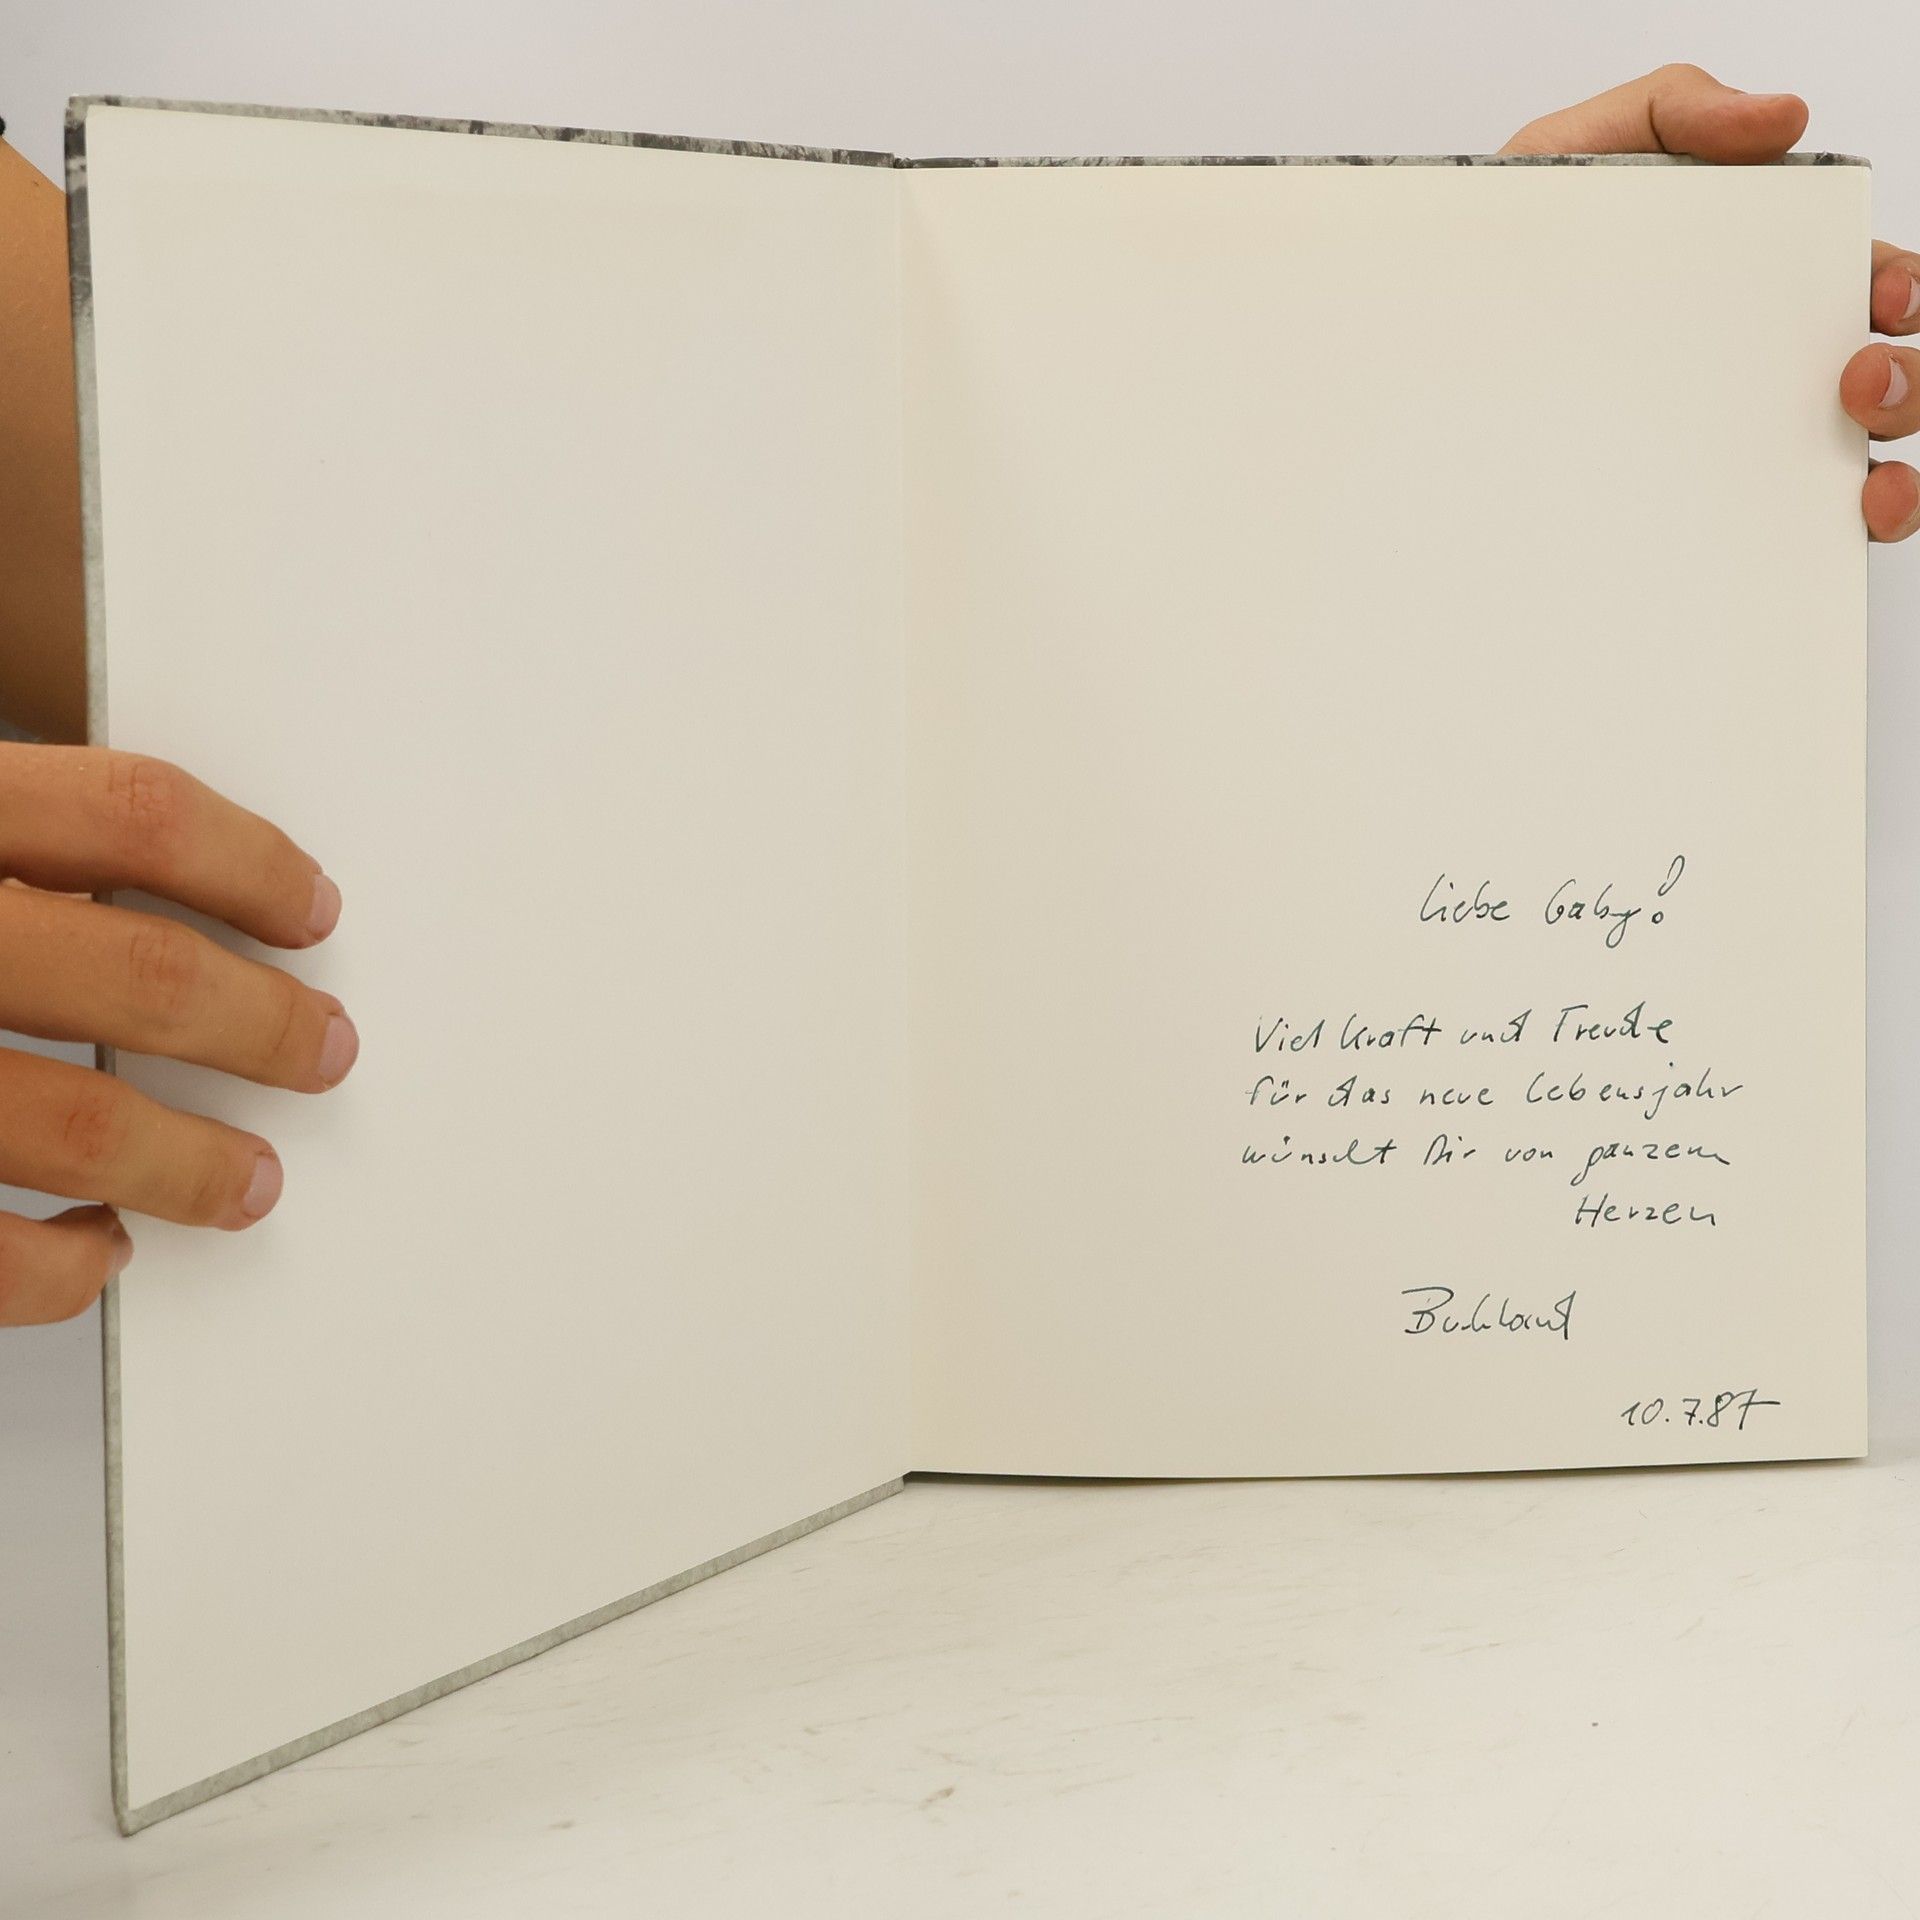 Liebe Gaby!
Viel Kraft und Freude
für das neue Lebensjahr
wünscht Dir von ganzem
Herzen
10.7.87